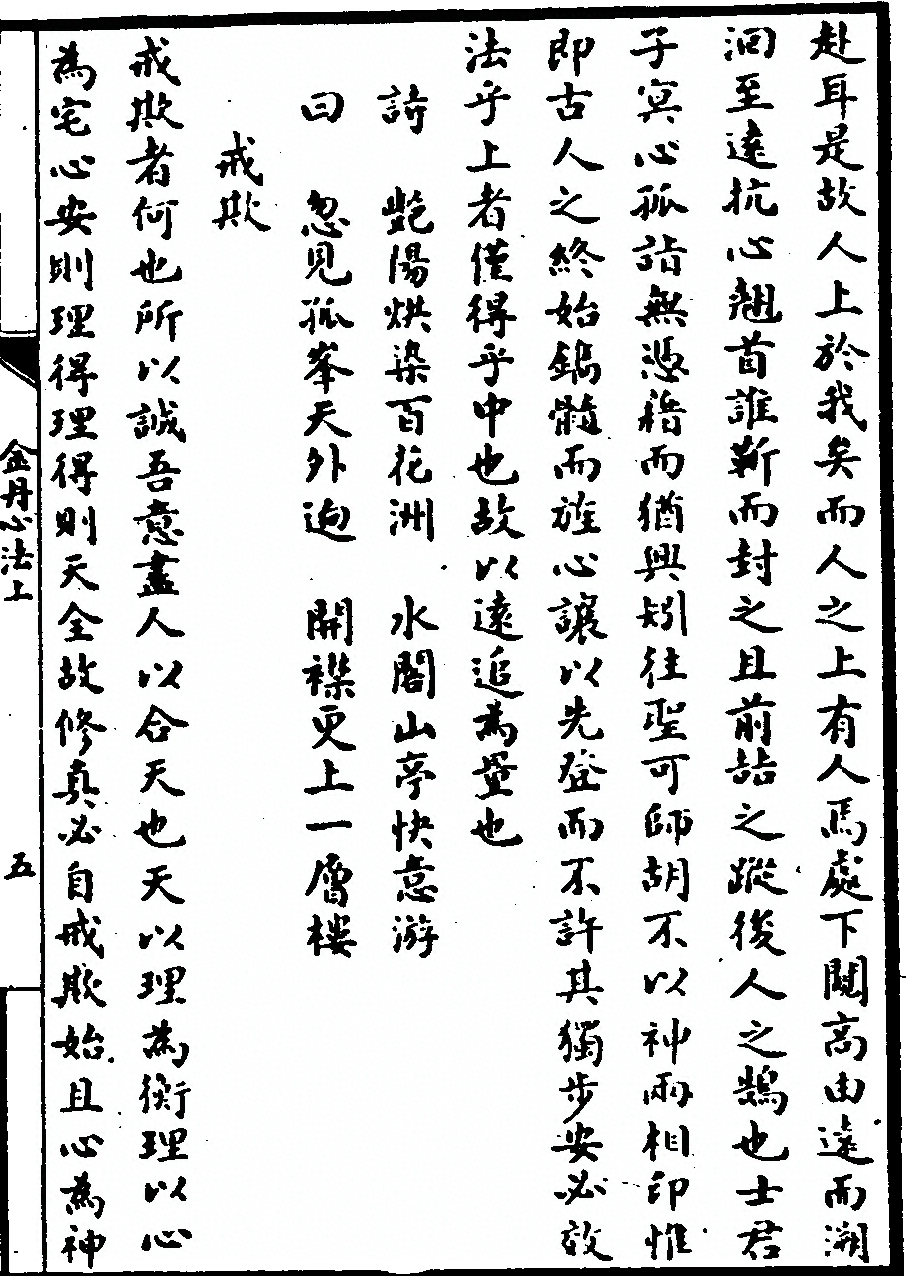 赴耳是故人上於我矣而人之上有人焉處下闚高由遠而溯
洄至遠抗心翹首誰靳而封之且前喆之蹤後人之鵠也士君
子冥心孤詣無憑藉而猶興矧往聖可師胡不以神兩相印惟
即古人之終始鎸髓而旌心讓以先登而不許其獨步安必故
法乎上者僅得乎中也故以遠追為量也
詩 艷陽烘染百花洲 水閣山亭快意游
曰 忽見孤峯天外迥 開襟更上一層樓
戒欺
戒欺者何也所以誠吾意盡人以合天也天以理為衡理以心
為宅心安則理得理得則天全故修真必自戒欺始且心為神
金丹心法上
五